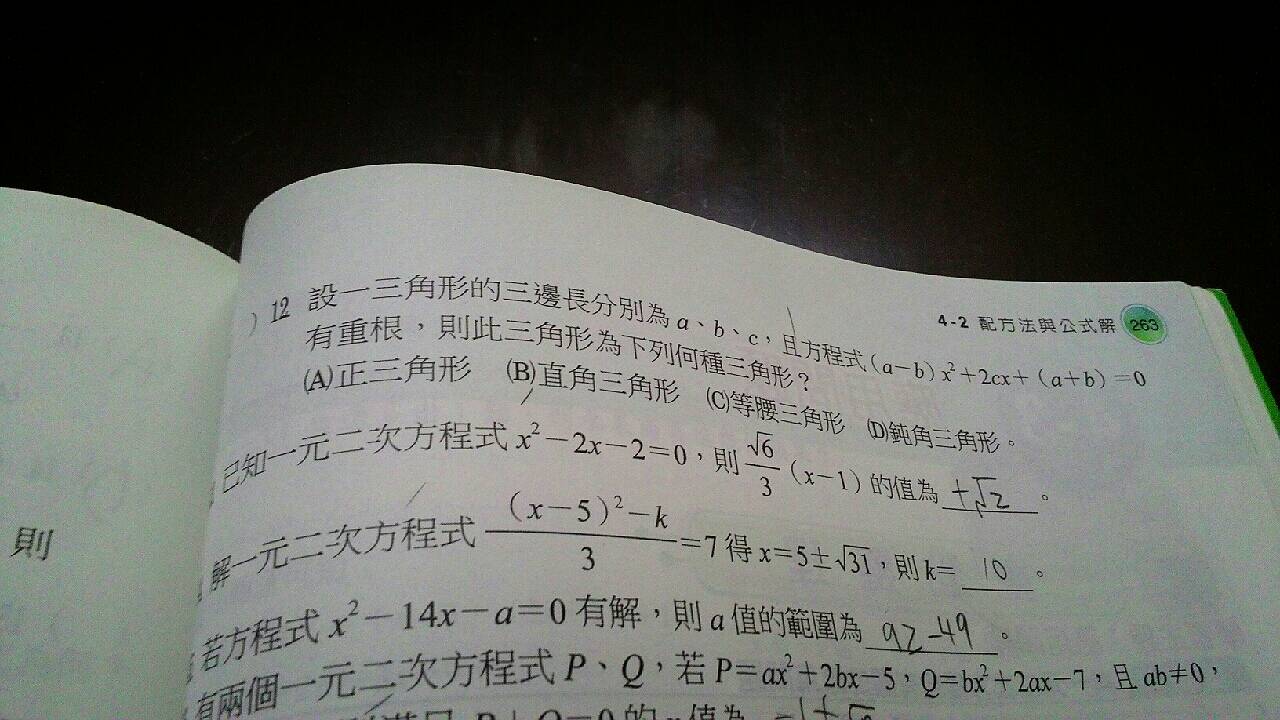 4-2 配方法與公式解 263
) 12 設一三角形的三邊長分別為 a、b、c,且方程式(a-b)x²+2cx+(a+b)=0
有重根,則此三角形為下列何種三角形?
(A)正三角形 (B)直角三角形 (C)等腰三角形 (D)鈍角三角形。
已知一元二次方程式 x²-2x-2=0,則 √6/3 (x-1) 的值為 ±√2 。
解一元二次方程式 ((x-5)²-k)/3 =7 得 x=5±√31,則 k= 10 。
若方程式 x²-14x-a=0 有解,則 a 值的範圍為 a≥-49 。
有兩個一元二次方程式 P、Q,若 P=ax²+2bx-5,Q=bx²+2ax-7,且 ab≠0,
P+Q=0 的 x 值為
則